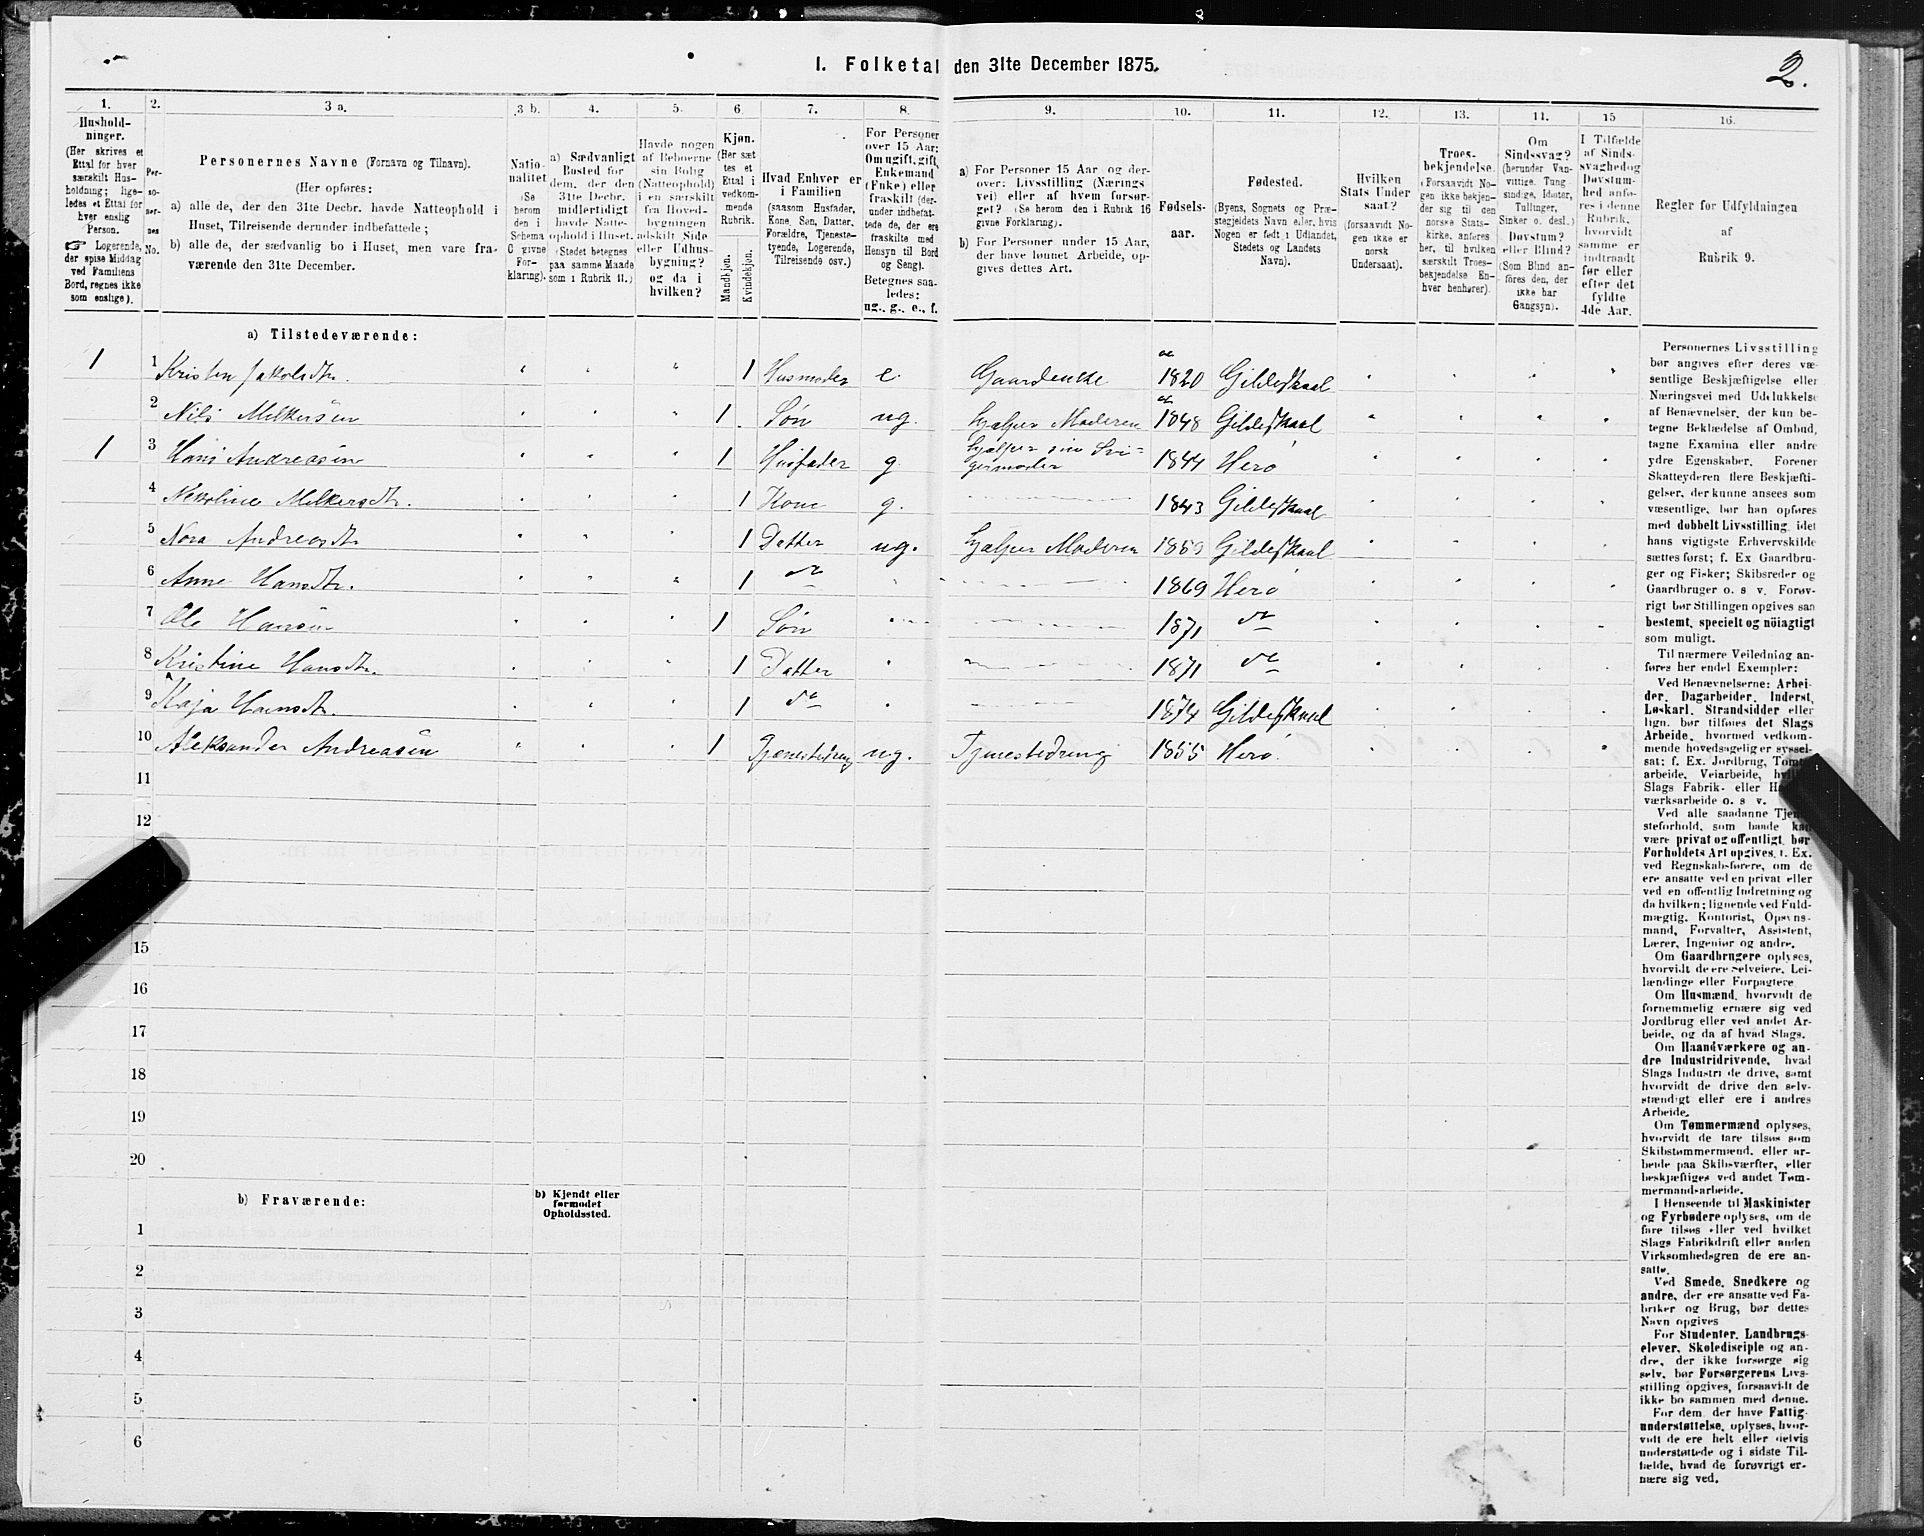 2.
I. Folketal den 31te December 1875.
1. 2. 3 a. 3 b. 4. 5. 6. 7. 8. 9. 10. 11. 12. 13. 14. 15 16.
Hushold-
ninger.
(Her skrives et
Ettal for hver
særskilt Hus-
holdning; lige-
ledes et Ettal for
hver enslig
Person.
☞ Logerende,
der spise Middag
ved Familiens
Bord, regnes ikke
som enslige).
Per-
so-
ner-
nes
No.
Personernes Navne (Fornavn og Tilnavn).
(Her opføres:
a) alle de, der den 31te Decbr. havde Natteophold i
Huset, Tilreisende derunder indbefattede;
b) alle de, der sædvanlig bo i Huset, men vare fra-
værende den 31te December.
Natio-
nalitet.
(Se
herom
den i
Schema
G givne
For-
klaring).
a) Sædvanligt
Bosted for
dem, der den
31te Decbr.
midlertidigt
havde Natte-
ophold i Huset.
(Stedet betegnes
paa samme Maade
som i Rubrik 11.)
Havde nogen
af Beboerne
sin Bolig
(Natteophold)
i en særskilt
fra Hoved-
bygningen
adskilt Side
eller Udhus-
bygning?
og da i
hvilken?
Kjøn.
(Her sæt-
tes et
Ettal i
vedkom-
mende
Rubrik.
Mandkjøn.
Kvindekjøn.
Hvad Enhver er
i Familien
(saasom Husfader,
Kone, Søn, Datter,
Forældre, Tjeneste-
tyende, Logerende,
Tilreisende osv.)
For Personer
over 15 Aar:
Om ugift, gift,
Enkemand
(Enke) eller
fraskilt (der-
under indbefat-
tede de, der ere
fraskilte med
Hensyn til Bord
og Seng).
Betegnes saa-
ledes:
ug., g., e., f.
a) For Personer 15 Aar og der-
over: Livsstilling (Nærings-
vei) eller af hvem forsør-
get? (Se herom den i Rubrik 16
givne Forklaring).
b) For Personer under 15 Aar,
der have lønnet Arbeide, op-
gives dettes Art.
Fødsels-
aar.
Fødested.
(Byens, Sognets og Præ-
stegjeldets Navn eller, hvis
Nogen er født i Udlandet,
Stedets og Landets
Navn).
Hvilken
Stats Under-
saat?
(forsaavidt No-
gen ikke er
norsk
Undersaat).
Troes-
bekjendelse.
(Forsaavidt No-
gen ikke bekjen-
der sig til den
norske Stats-
kirke, anføres
her, til hvilken
særskilt Troes-
bekjendelse En-
hver henhører).
Om
Sindssvag?
(herunder Van-
vittige, Tung-
sindige, Idioter,
Tullinger,
Sinker o. desl.)
Døvstum?
eller Blind?
(Som Blind an-
føres den, der
ikke har
Gangsyn).
I Tilfælde
af Sinds-
svaghed og
Døvstum-
hed anfø-
res i denne
Rubrik,
hvorvidt
samme er
indtraadt
før eller
efter det
fyldte
4de Aar.
Regler for Udfyldningen
af
Rubrik 9.
a) Tilstedeværende:
1 1 Kristen Jakobsdtr. 1 Husmoder e. Gaardenke 1820 Gildeskaal
2 Nils Melkersen 1 Søn ug. hjælper Moderen 1848 Gildeskaal
1 3 Hans Andreasen 1 Husfader g. hjælper sin Svi-
germoder 1844 Herø
4 Nekoline Melkersdtr. 1 Kone g. 1843 Gildeskaal
5 Nora Andreasdtr. 1 Datter ug. hjælper Moderen Gildeskaal
6 Anne Hansdtr. 1 do 1869 Herø
7 Ole Hansen 1 Søn 1871 do
8 Kristine Hansdtr. 1 Datter 1871 do
9 Kaja Hansdtr. 1 do 1874 Gildeskaal
10 Aleksander Andreasen 1 Tjenestedreng ug. Tjenestedreng 1855 Herø.
11
12
15
16
17
18
19
20
b) Fraværende:
b) Kjendt eller
formodet
Opholdssted.
1
2
3
4
5
6
Personernes Livsstilling
bør angives efter deres væ-
sentlige Beskjæftigelse eller
Næringsvei med Udelukkelse
af Benævnelser, der kun be-
tegne Beklædelse af Ombud,
tagne Examina eller andre
ydre Egenskaber. Forener
Skatteyderen flere Beskjæfti-
gelser, der kunne ansees som
væsentlige, bør han opføres
med dobbelt Livsstilling, idet
hans vigtigste Erhvervskilde
sættes først; f. Ex Gaardbru-
ger og Fisker; Skibsreder og
Gaardbruger o. s v. Forøv-
rigt bør Stillingen opgives saa
bestemt, specielt og nøiagtigt
som muligt.
Til nærmere Veiledning an-
føres her endel Exempler:
Ved Benævnelserne: Arbei-
der, Dagarbeider, Inderst,
Løskarl, Strandsidder eller
lign. bør tilføres det Slags
Arbeide, hvormed vedkom-
mende hovedsagelig er syssel-
sat; f. Ex. Jordbrug, Tomte-
arbeide, Veiarbeide, hvilket
Slags Fabrik- eller Haand-
værksarbeide o. s v.
Ved alle saadanne Tjene-
steforhold, som baade kan
være privat og offentligt, bør
Forholdets Art opgives, t. Ex.
ved Regnskabsførere, om de
ere ansatte ved en privat eller
ved en offentlig Indretning og
da hvilken; lignende ved Fuld-
mægtig, Kontorist, Opsyns-
mand, Forvalter, Assistent,
Lærer, Ingeniør og andre.
Om Gaardbrugere oplyses,
hvorvidt de ere Selveiere, Lei-
lændinge eller Forpagtere
Om Husmænd, hvorvidt de
fornemmelig ernære sig ved
Jordbrug eller ved andet Ar-
beide, og da af hvad Slags.
Om Haandværkere og an-
dre Industridrivende, hvad
Slags Industri de drive, samt
hvorvidt de drive den selv-
stændigt eller ere i andres
Arbeide.
Om Tømmermænd oplyses,
hvorvidt de fare tilsøs som
Skibstømmermænd, eller ar-
beide paa Skibsværfter, eller
beskjæftiges ved andet Tøm-
mermandsarbeide.
I Henseende til Maskinister
og Fyrbødere oplyses, om de
fare tilsøs eller ved hvilket
Slags Fabrikdrift eller anden
Virksomhedsgren de ere an-
satte.
Ved Smede, Snedkere og
andre, der ere ansatte ved Fa-
briker og Brug, bør dettes
Navn opgives
For Studenter, Landbrugs-
elever, Skoledisciple og an-
dre, der ikke forsørge sig
selv, bør Forsørgerens Livs-
stilling opgives, forsaavidt de
ikke bo sammen med denne.
For dem, der have Fattig-
understøttelse, oplyses, hvor-
vidt de ere helt eller delvis
understøttede og i sidste Til-
fælde, hvad de forøvrigt er-
nære sig ved.